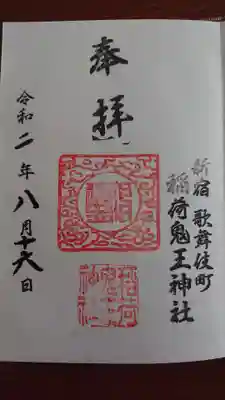 新宿歌舞伎町
稲荷鬼王神社
奉拝
令和二年八月十六日